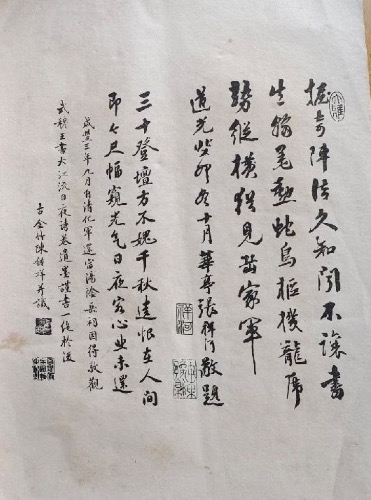 握奇陣法久知聞不讓書
生豹尾勳蛇鳥樞機龍虎
勢縱橫猶見岳家軍
道光癸卯冬十月華亭張祥河敬題
三十登壇方不愧千秋遺恨在人間
即今尺幅窺光氣日夜客心未還
咸豐三年九月自清化軍還湯陰岳祠因得敬觀
武穆王書大江流日夜詩卷遺墨謹書一絕於後
陳鍾祥并識
祥河